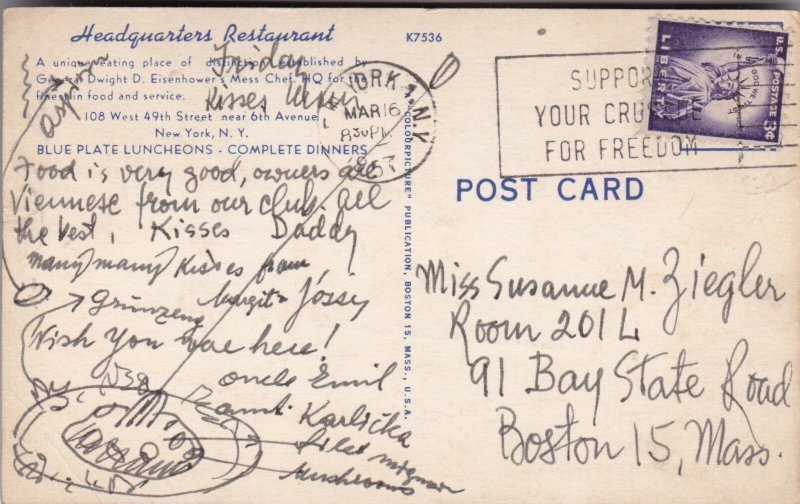 Headquarters Restaurant
K7536
A unique eating place of distinction established by
General Dwight D. Eisenhower's Mess Chef. HQ for the
finest in food and service.
108 West 49th Street near 6th Avenue
New York, N. Y.
BLUE PLATE LUNCHEONS - COMPLETE DINNERS
Friday
Kisses
YORK, N.Y.
MAR 16
830 PM
SUPPORT
YOUR CRUSADE
FOR FREEDOM
U.S. POSTAGE 3¢
LIBERTY
IN GOD WE TRUST
Food is very good, owners are
Viennese from our club. All
the best, Kisses Daddy
many many Kisses from
Margit & Jossy
Grünzeug
Wish You were here!
oncle Emil
aunt Karlička
filet mignon
mushrooms
"COLOURPICTURE" PUBLICATION, BOSTON 15, MASS., U.S.A.
POST CARD
Miss Susanne M. Ziegler
Room 201 L
91 Bay State Road
Boston 15, Mass.